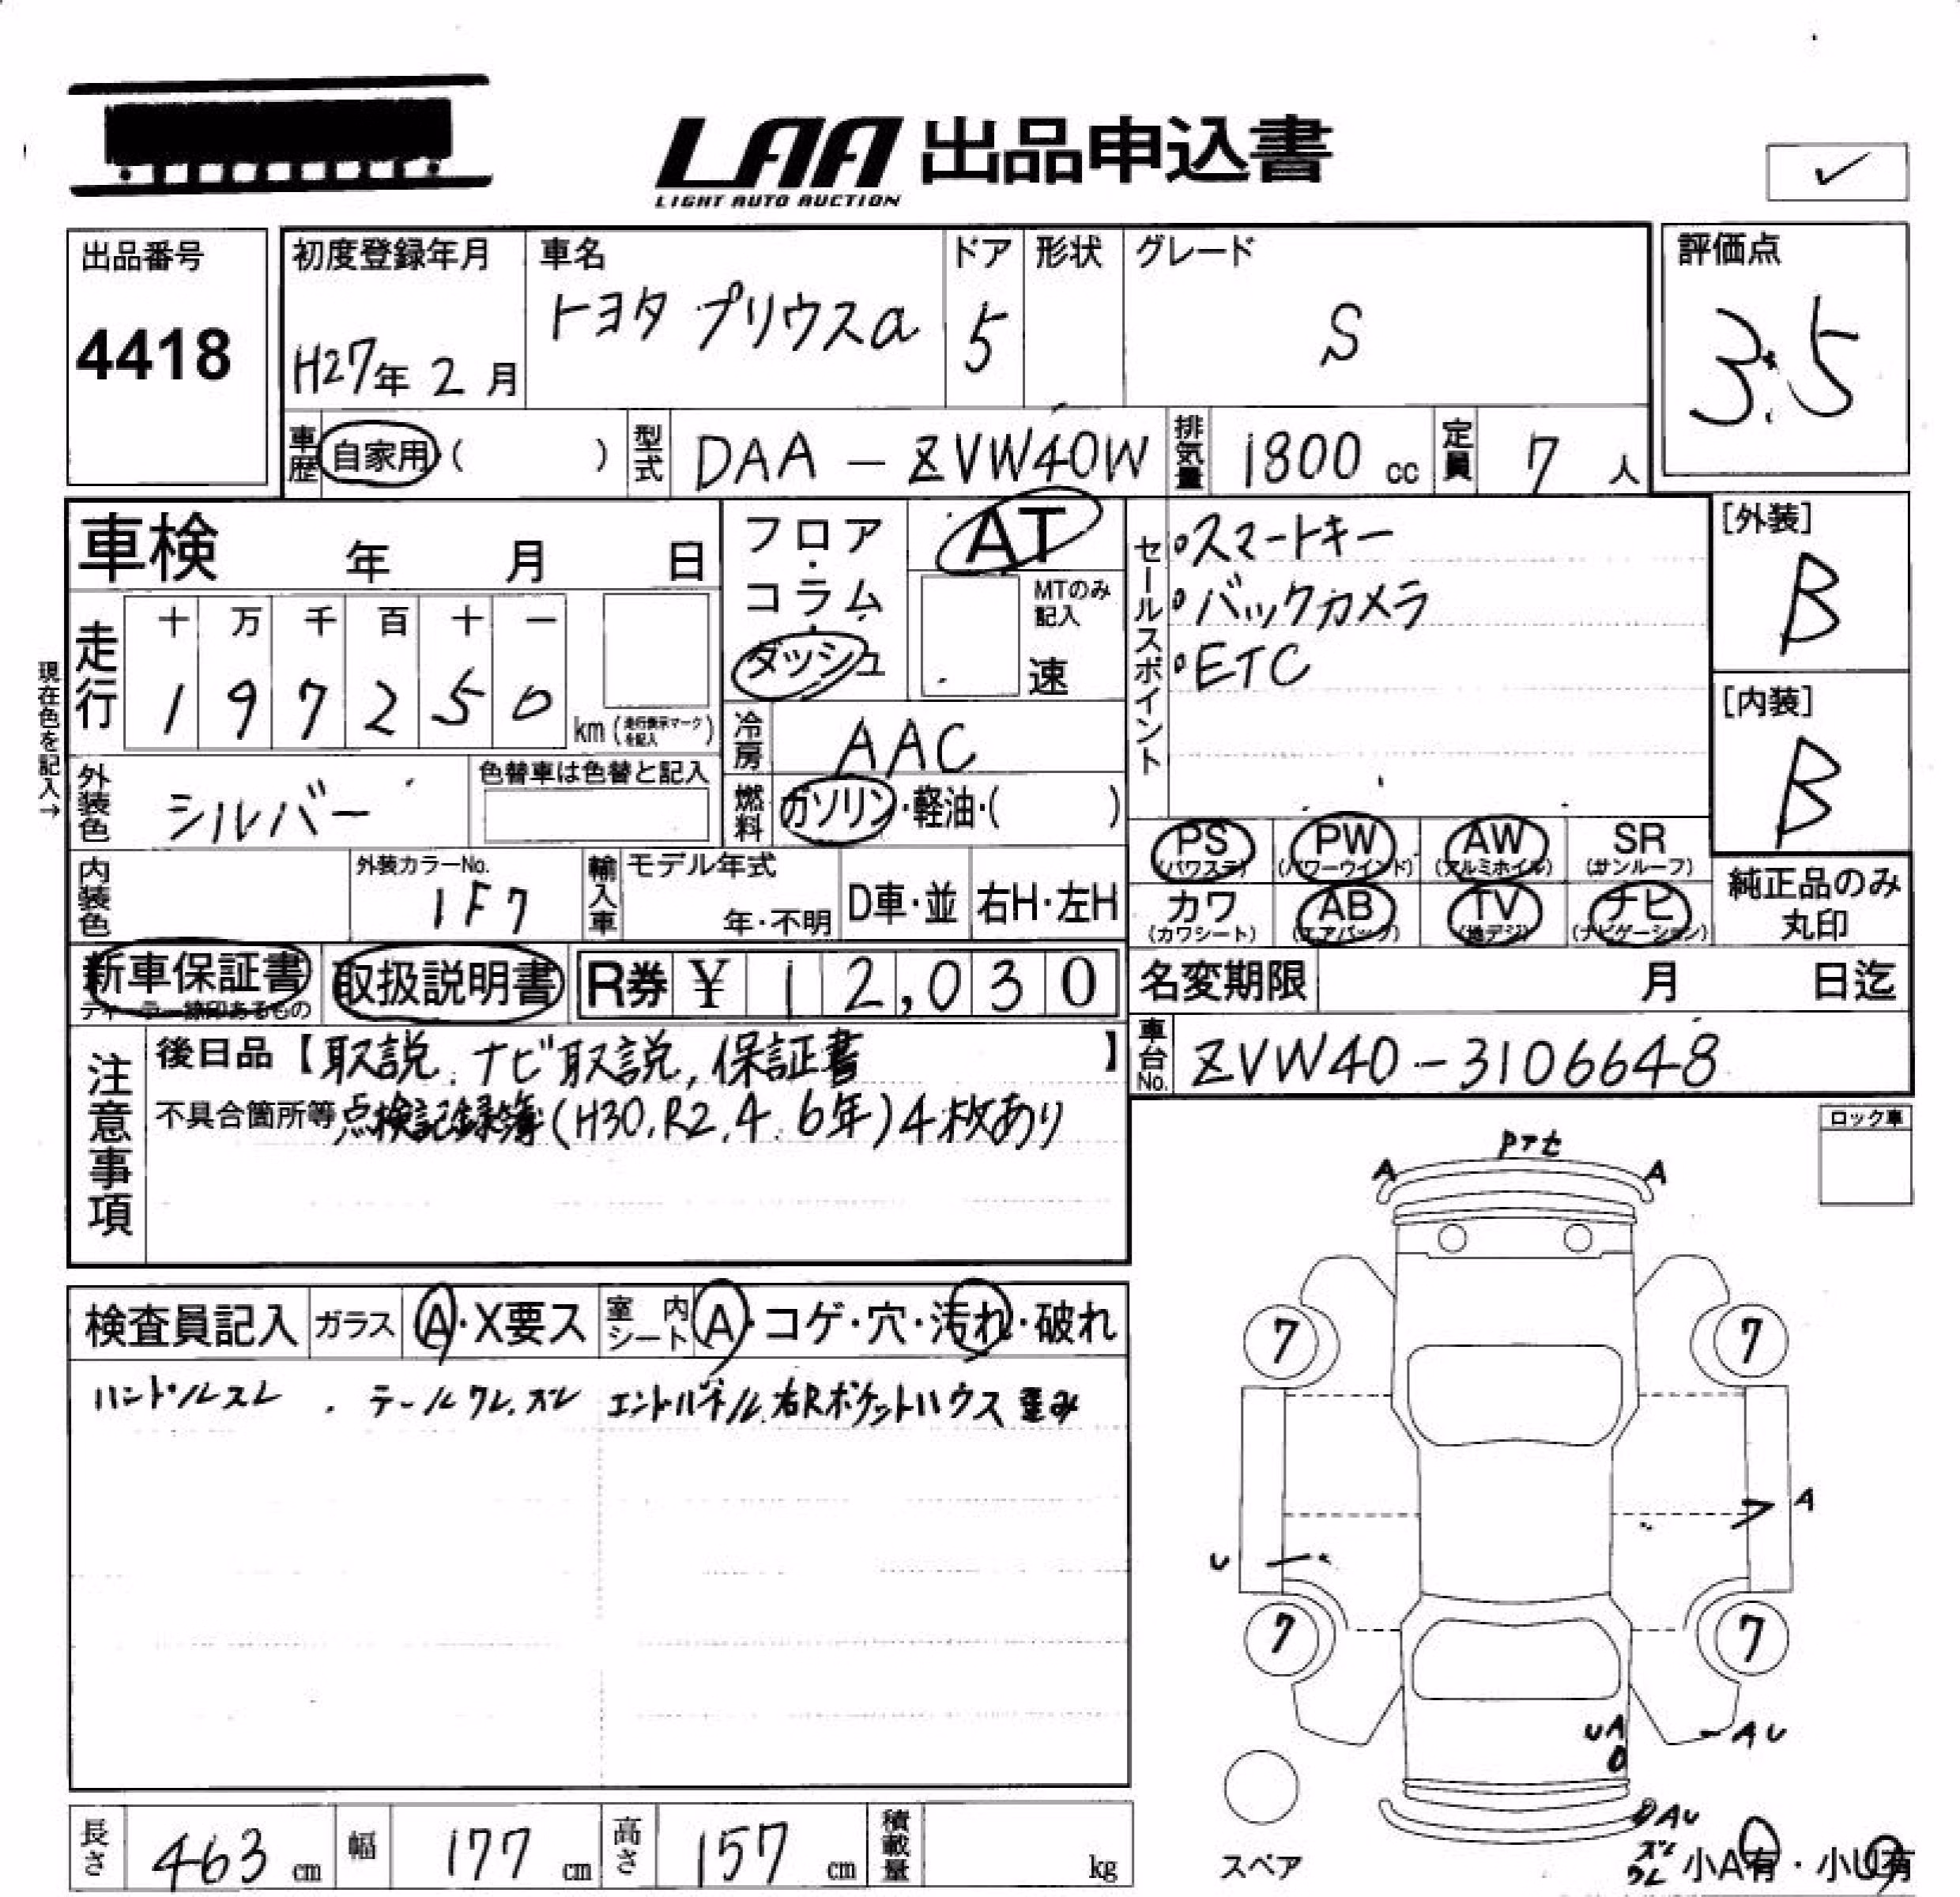 LAA 出品申込書
LIGHT AUTO AUCTION
出品番号
4418
初度登録年月
H27年 2月
車名
トヨタ プリウスα
ドア
5
形状
グレード
S
評価点
3.5
車歴 自家用 ( )
型式 DAA-ZVW40W
排気量 1800 cc
定員 7 人
車検 年 月 日
フロア・コラム・ダッシュ
AT
MTのみ記入
速
セールスポイント
・スマートキー
・バックカメラ
・ETC
[外装]
B
[内装]
B
現在色を記入→
走行
十 万 千 百 十 一
1 9 7 2 5 0
km (走行表示マークを記入)
冷房 AAC
外装色 シルバー
色替車は色替と記入
燃料 ガソリン・軽油・( )
内装色
外装カラーNo.
1F7
輸入車
モデル年式
年・不明
D車・並
右H・左H
PS (パワステ)
PW (パワーウインド)
AW (アルミホイル)
SR (サンルーフ)
カワ (カワシート)
AB (エアバック)
TV (地デジ)
ナビ (ナビゲーション)
純正品のみ丸印
新車保証書
ディーラー締印あるもの
取扱説明書
R券 ¥ 12,030
名変期限 月 日迄
車台No. ZVW40-3106648
注意事項
後日品【取説、ナビ取説、保証書】
不具合箇所等 点検記録簿(H30, R2, 4, 6年)4枚あり
ロック車
検査員記入
ガラス A・X要ス
室内シート A・コゲ・穴・汚れ・破れ
ハンドルスレ . テールワレ.ズレ エンドパネル.右Rポケットハウス 歪み
A
A
7
7
A
U
7
7
UA
AU
AU
ズレ
ワレ
スペア
小A有・小U有
長さ 463 cm
幅 177 cm
高さ 157 cm
積載量 kg